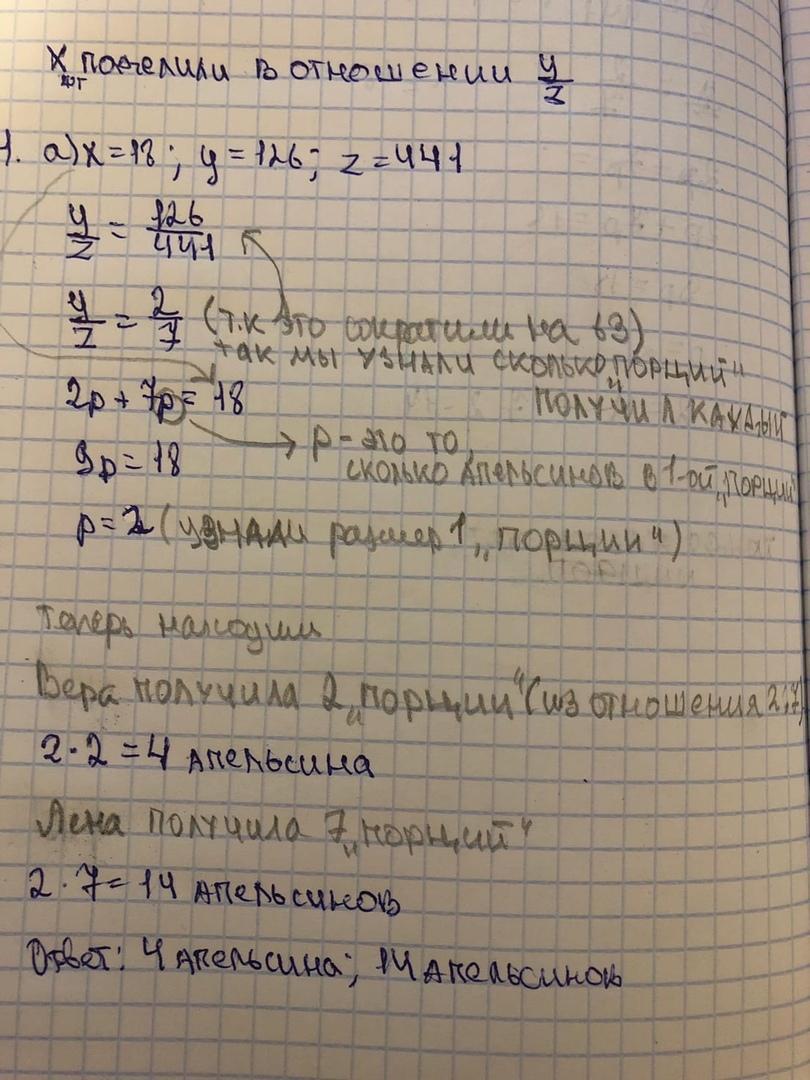 X поделили в отношении y/z
1. а) x=18; y=126; z=441
y/z = 126/441
y/z = 2/7 (т.к это сократили на 63)
так мы узнали сколько „порций“
получил каждый
2p + 7p = 18
p - это то,
сколько апельсинов в 1-ой „порции
9p = 18
p = 2 (узнали размер 1 „порции“)
Теперь находим
Вера получила 2 „порции“ (из отношения 2:7)
2·2 = 4 апельсина
Лена получила 7 „порций“
2·7 = 14 апельсинов
Ответ: 4 апельсина; 14 апельсинов